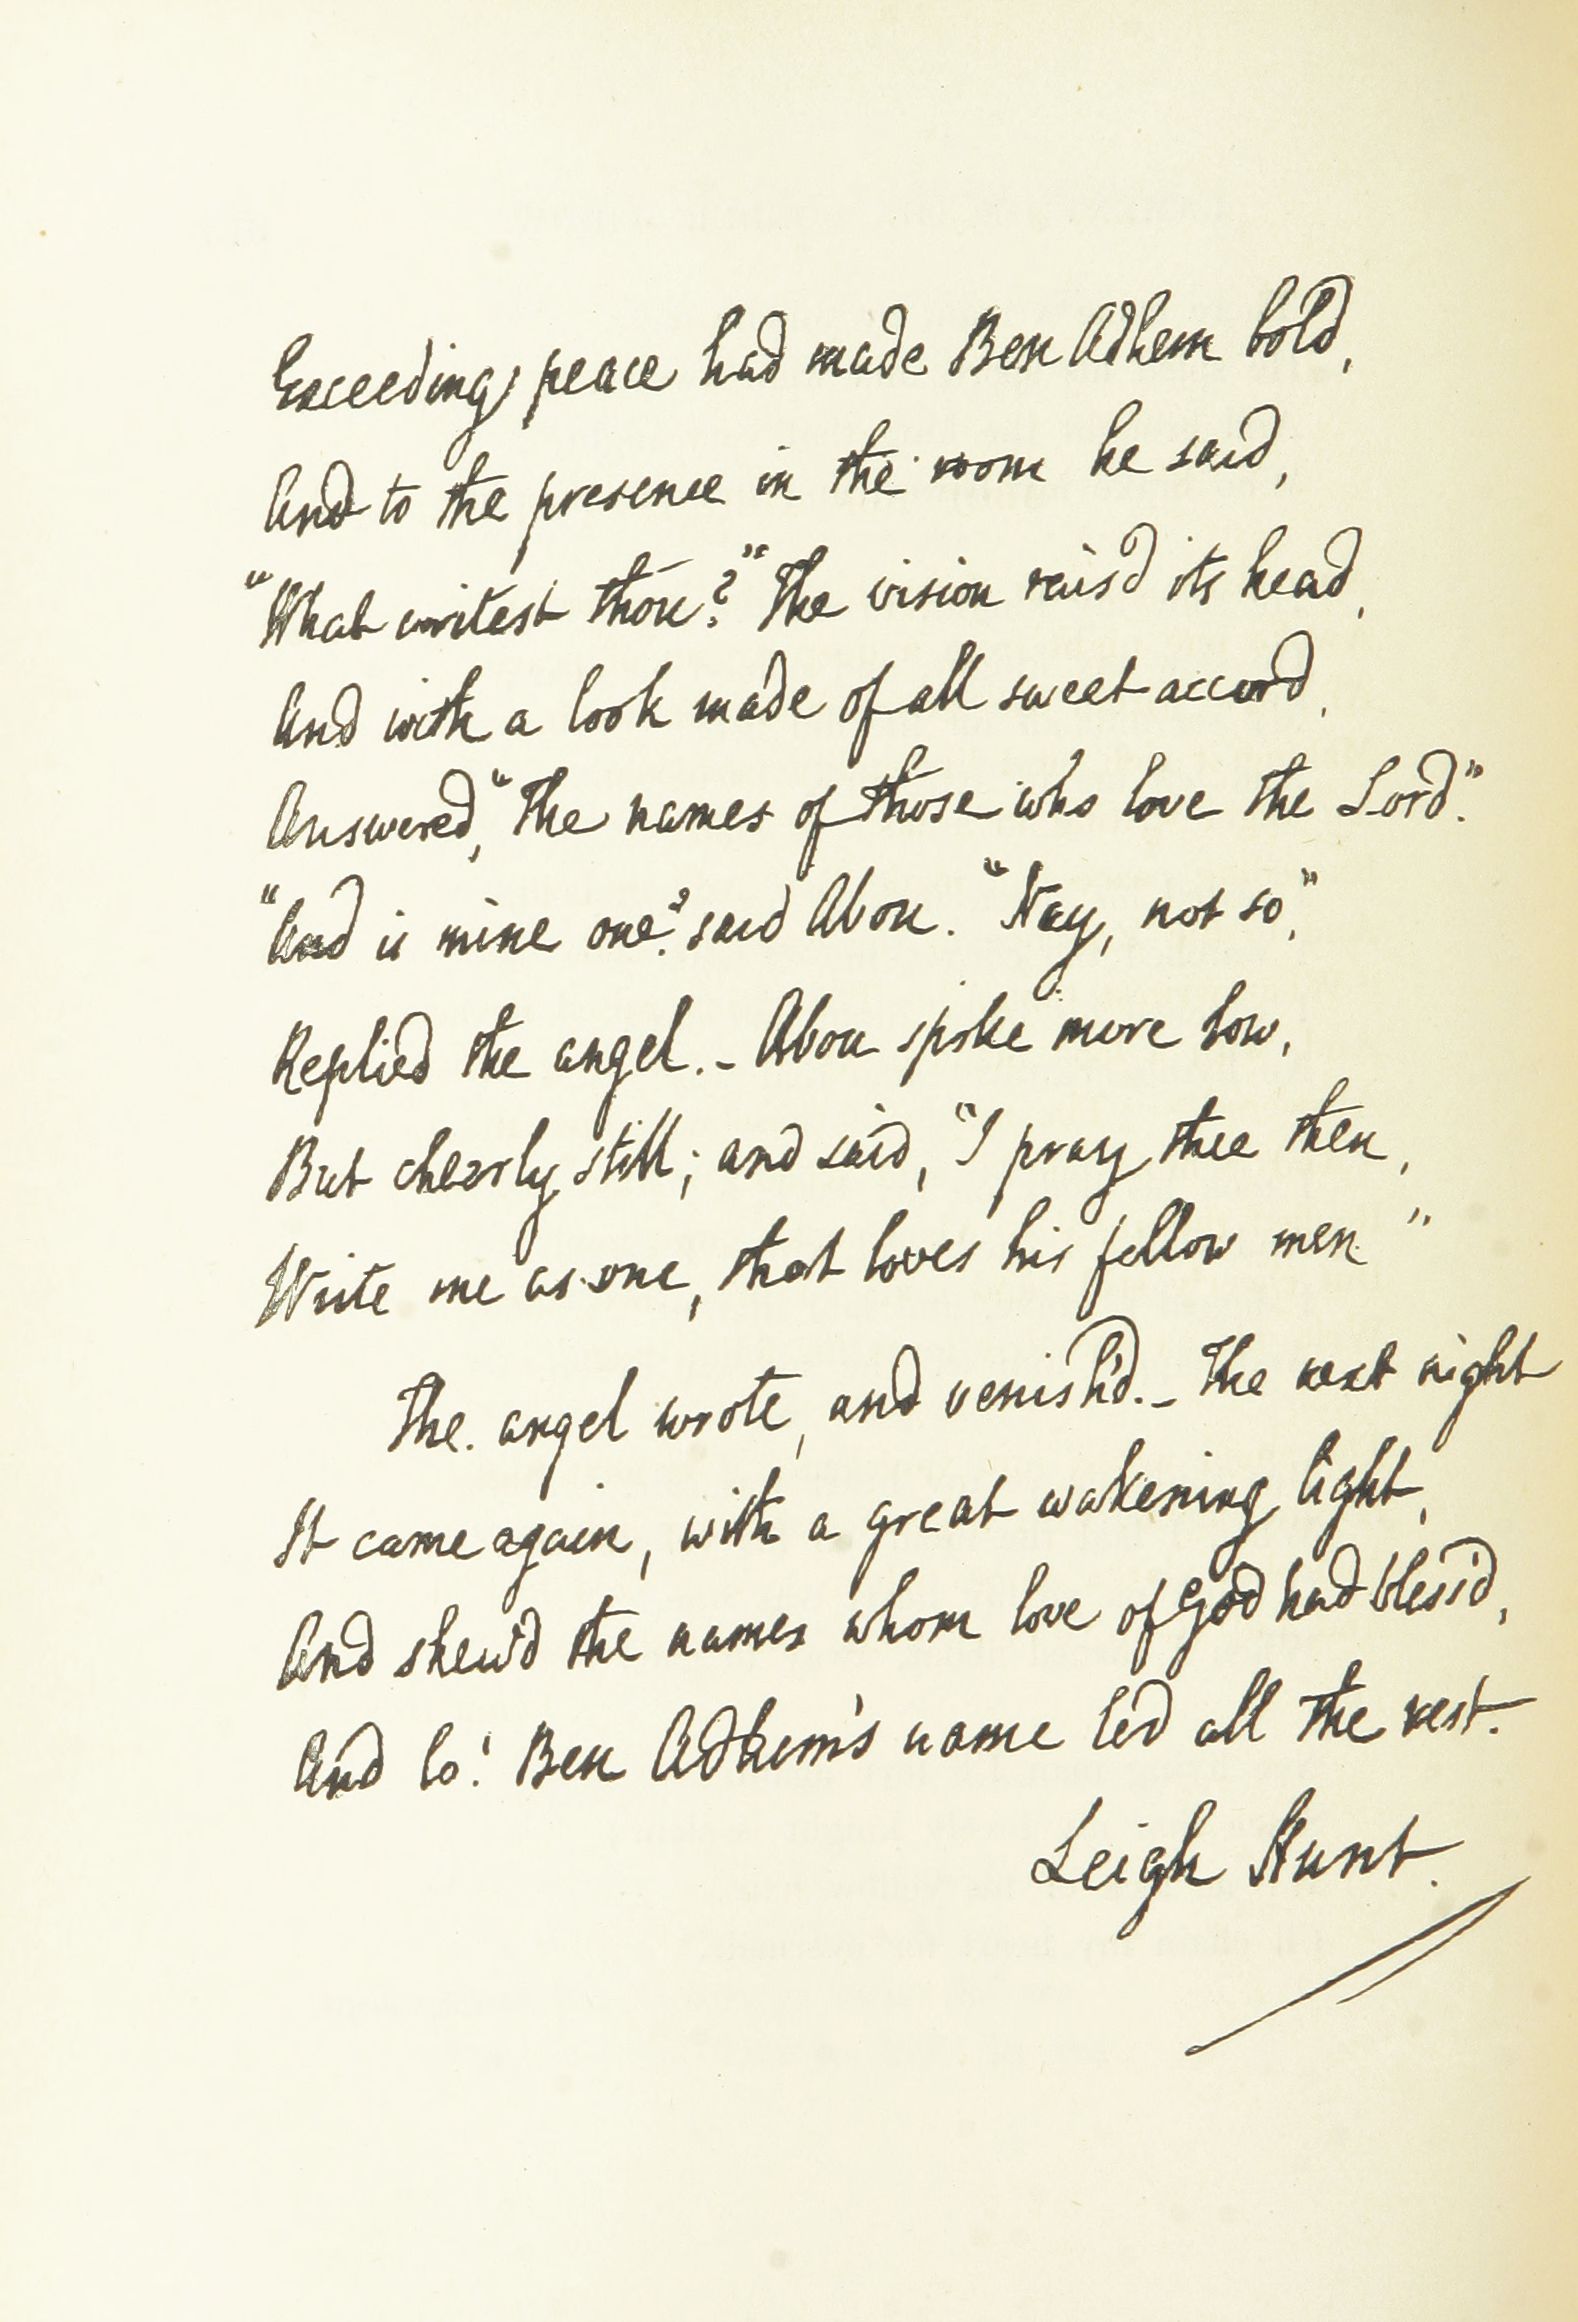 Exceeding peace had made Ben Adhem bold,
And to the presence in the room he said,
"What writest thou?" The vision rais'd its head,
And with a look made of all sweet accord,
Answered, "The names of those who love the Lord."
"And is mine one?" said Abou. "Nay, not so",
Replied the angel. – Abou spoke more low,
But cheerly still; and said, "I pray thee then,
Write me as one, that loves his fellow men."
The angel wrote, and vanish'd. – The next night
It came again, with a great wakening light,
And shew'd the names whom love of God had bless'd,
And lo! Ben Adhem's name led all the rest.
Leigh Hunt.